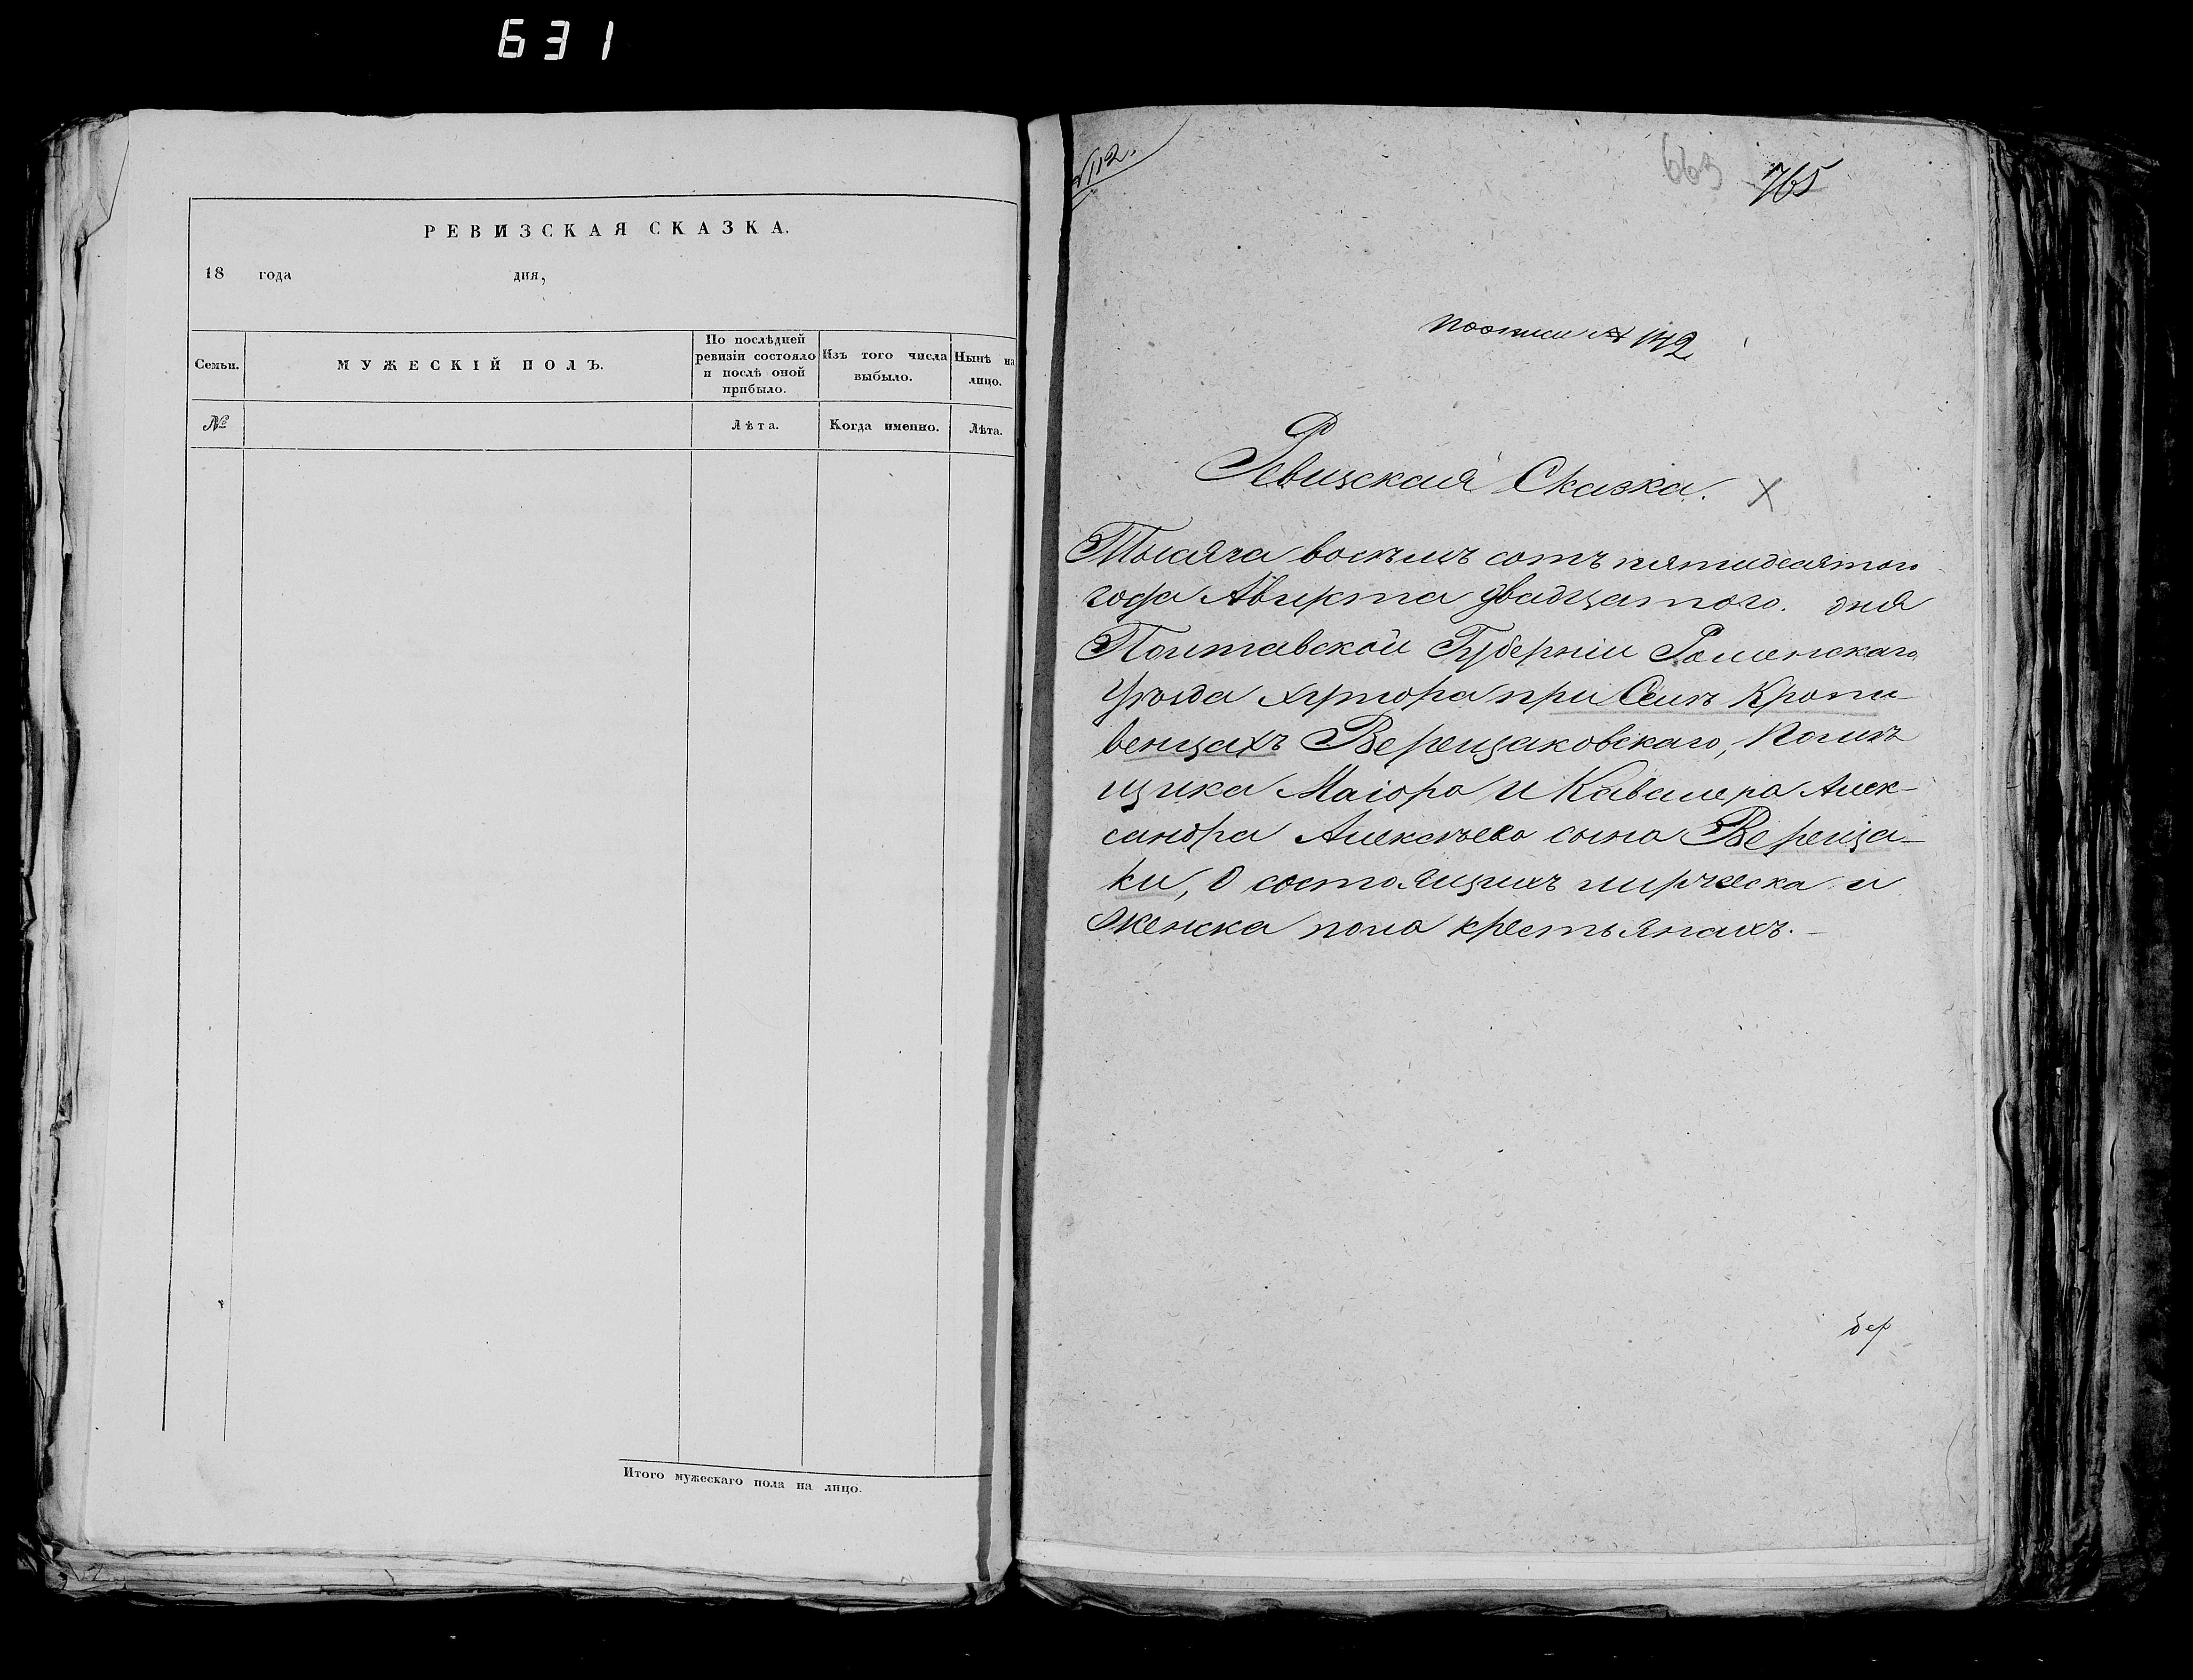 631
РЕВИЗСКАЯ СКАЗКА.
18 года дня,
Семьи.
МУЖЕСКІЙ ПОЛЪ.
По послѣдней
ревизіи состояло
и послѣ оной
прибыло.
Изъ того числа
выбыло.
Нынѣ на
лицо.
№
Лѣта.
Когда именно.
Лѣта.
Итого мужескаго пола на лицо.
663 765
поописи № 142
Ревизская Сказка. X
Тысяча восемъ сотъ пятидесятого
года Августа двадцатого. дня
Полтавской Губерніи Роменскаго
уѣзда хутора при Селѣ Кропи-
венцахъ Верещаковскаго, Помѣ
щика Маіора и Кавалера Алек-
сандра Алексѣева сына Вереща-
ки, О состоящихъ мужеска и
женска пола крестьянахъ.-